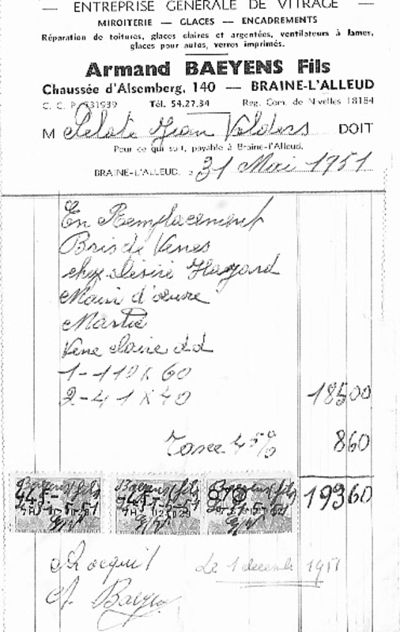 — ENTREPRISE GÉNÉRALE DE VITRAGE —
MIROITERIE — GLACES — ENCADREMENTS
Réparation de toitures, glaces claires et argentées, ventilateurs à lames,
glaces pour autos, verres imprimés.
Armand BAEYENS Fils
Chaussée d'Alsemberg, 140 — BRAINE-L'ALLEUD
C. C. P. 731939 Tél. 54.27.34 Reg. Com. de Nivelles 18184
M Jean DOIT
Pour ce qui suit, payable à Braine-l'Alleud.
BRAINE-L'ALLEUD, le 31 Mai 1951
En Remplacement
Bris de Verres
chez désiré
Main d'œuvre
Mastic
Verre claire d.d
1 - 119 x 60
2 - 41 x 40 18500
Taxe 45% 860
19360
Baeyens fils Baeyens fils Baeyens fils
Pr acquit Le 1 décembre 1951
A. Baeyens